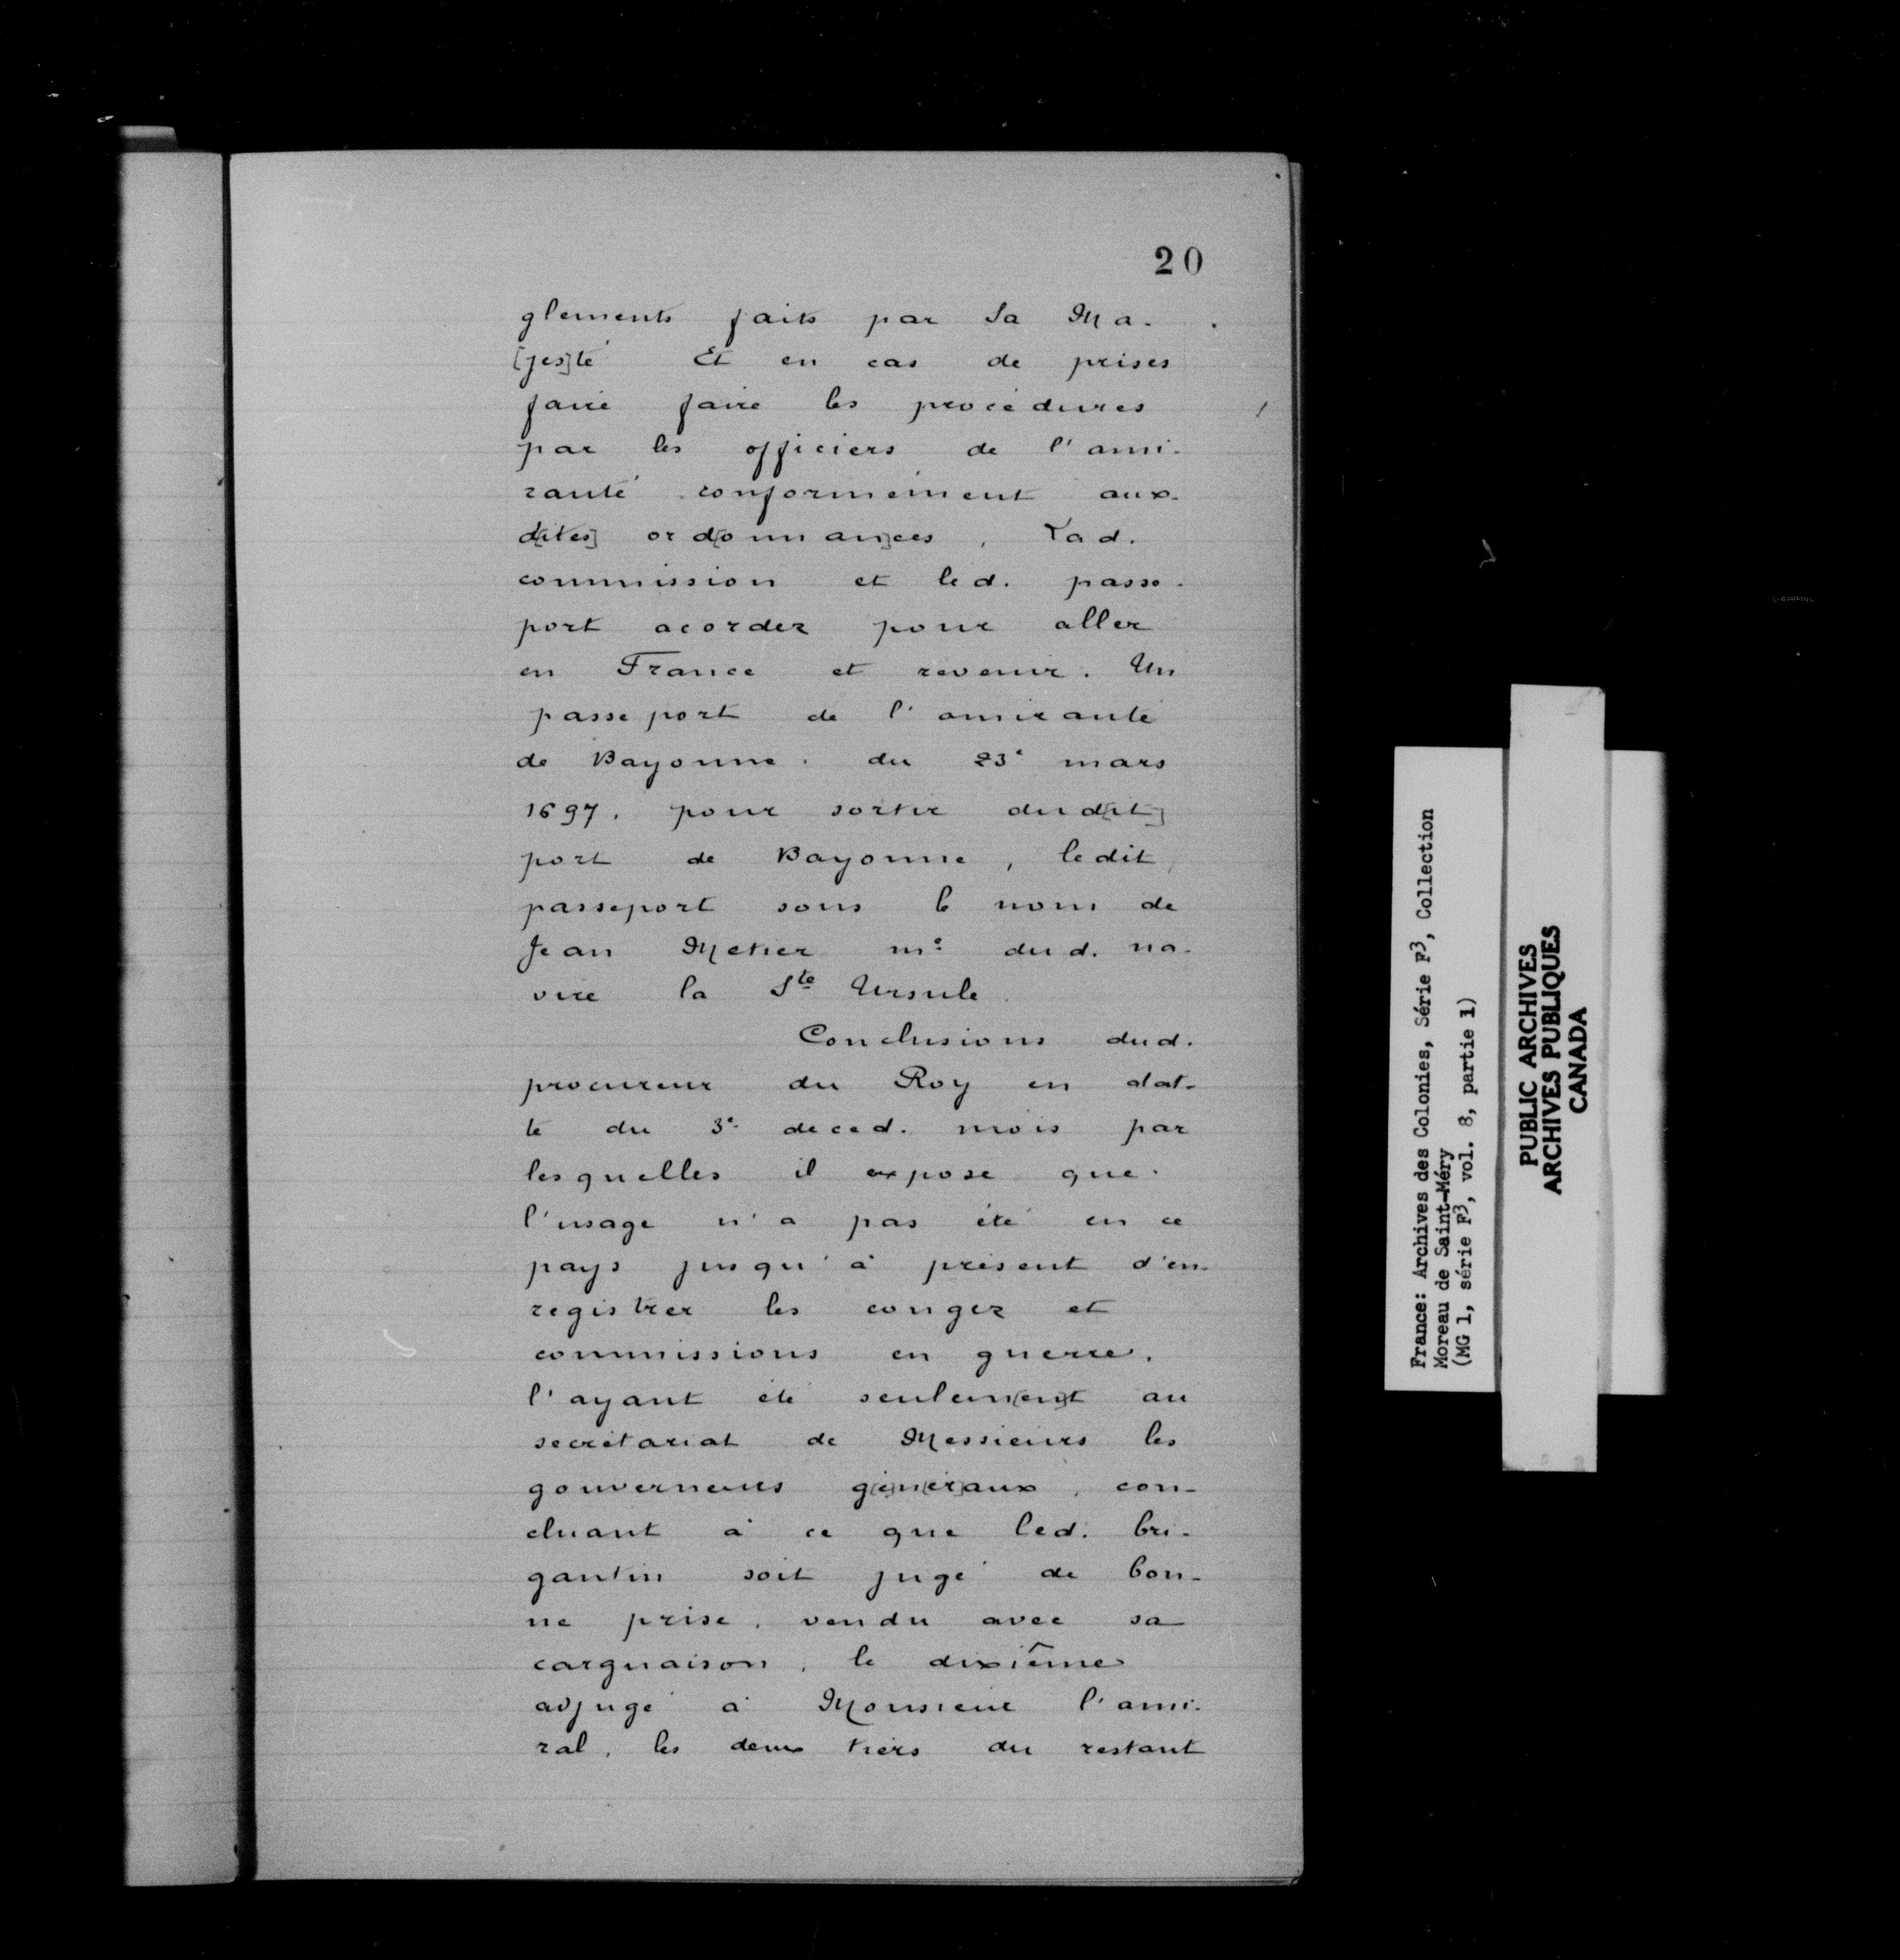 20
glements faits par Sa Ma-
[jes]té Et en cas de prises
faire faire les procédures
par les officiers de l'ami-
rauté conformément aux-
d[ites] ord[onnan]ces, Lad.
commission et led. passe-
port acordez pour aller
en France et revenir. Un
passeport de l'amirauté
de Bayonne. du 23e mars
1697. pour sortir dud[it]
port de Bayonne, ledit
passeport sous le nom de
Jean Metier me dud. na-
vire la Ste Ursule.
Conclusions dud.
procureur du Roy en dat-
te du 3e de ced. mois par
lesquelles il expose que
l'usage n'a pas été en ce
pays jusqu'à présent d'en-
registrer les congez et
commissions en guerre,
l'ayant été seulem[en]t au
secrétariat de Messieurs les
gouverneurs g[én]é[r]aux, con-
cluant à ce que led. bri-
gantin soit jugé de bon-
ne prise, vendu avec sa
carguaison, le dixième
adjugé à Monsieur l'ami-
ral, les deux tiers du restant
France: Archives des Colonies, Série F3, Collection
Moreau de Saint-Méry
(MG 1, série F3, vol. 8, partie 1)
PUBLIC ARCHIVES
ARCHIVES PUBLIQUES
CANADA